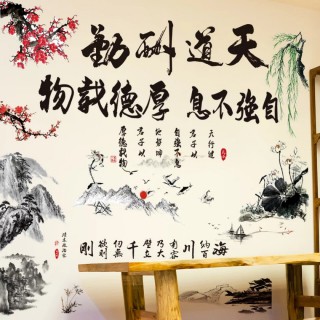 天道酬勤
自強不息 厚德载物
天行健
君子以
自強不息
地势坤
君子以
厚德载物
海纳百川有容乃大壁立千仞無欲則剛